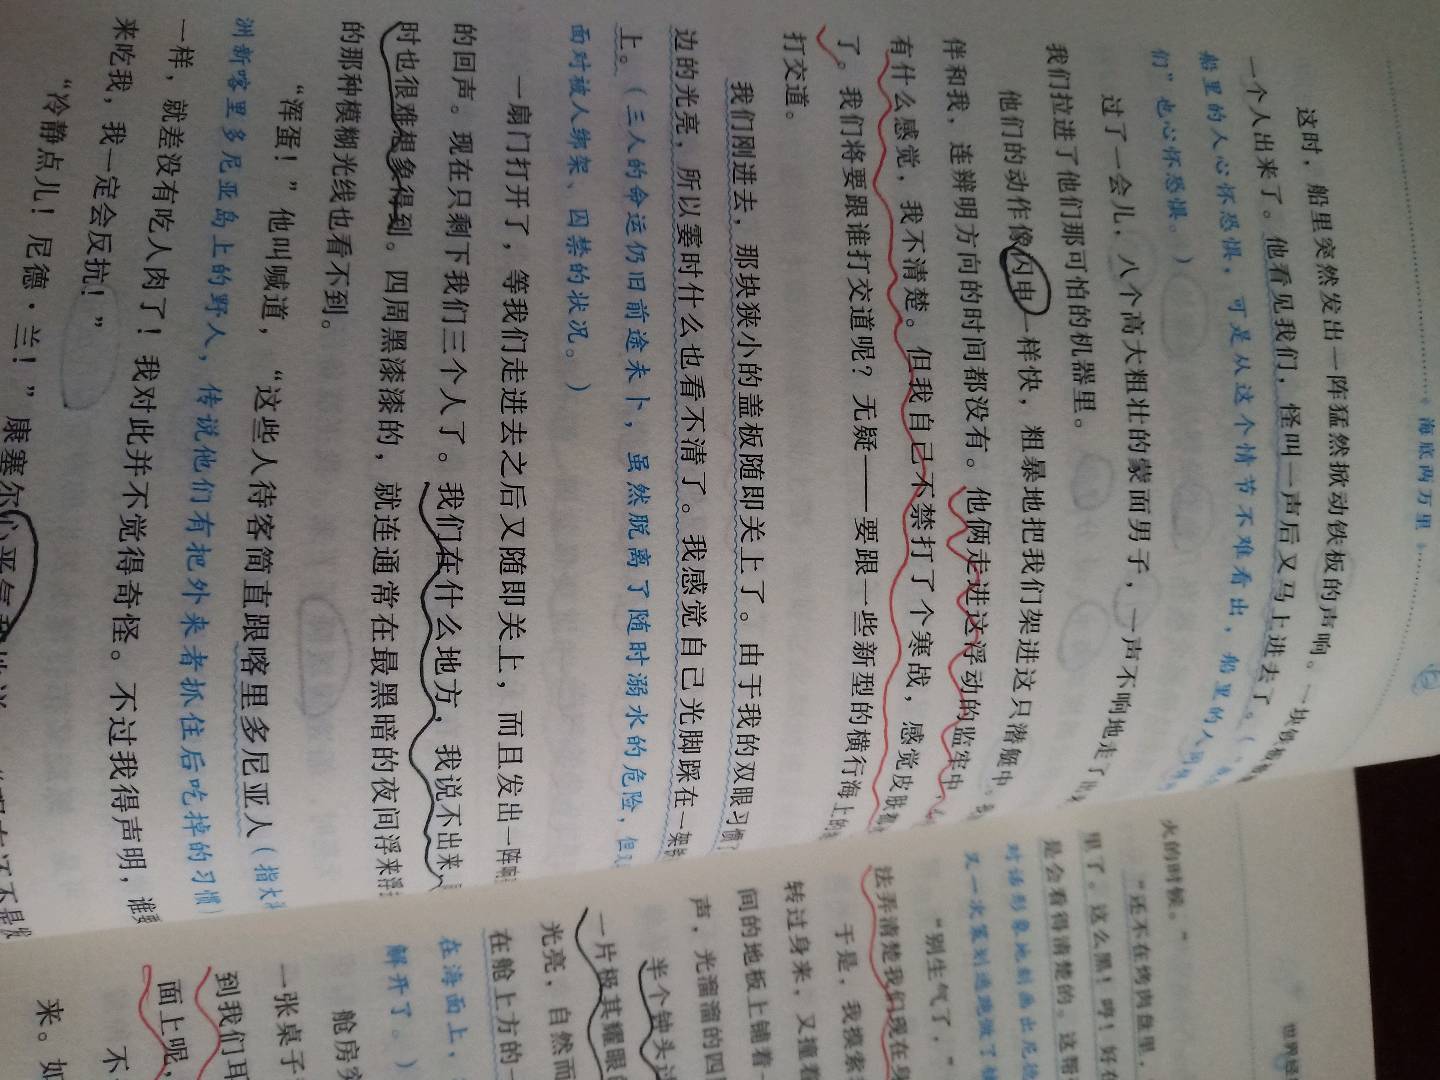 海底两万里
这时，船里突然发出一阵猛然掀动铁板的声响。一块
一个人出来了。他看见我们，怪叫一声后又马上进去了。（
船里的人心怀恐惧，可是从这个情节不难看出，船里的人
们”也心怀恐惧。）
过了一会儿，八个高大粗壮的蒙面男子，一声不响地走了
我们拉进了他们那可怕的机器里。
他们的动作像闪电一样快，粗暴地把我们架进这只潜艇中。
伴和我，连辨明方向的时间都没有。他俩走进这浮动的监牢中，
有什么感觉，我不清楚。但我自己不禁打了个寒战，感觉皮肤
了。我们将要跟谁打交道呢？无疑——要跟一些新型的横行海上的
打交道。
我们刚进去，那块狭小的盖板随即关上了。由于我的双眼习惯了
边的光亮，所以霎时什么也看不清了。我感觉自己光脚踩在一架
上。（三人的命运仍旧前途未卜，虽然脱离了随时溺水的危险，但又
面对被人绑架、囚禁的状况。）
一扇门打开了，等我们走进去之后又随即关上，而且发出一阵响
的回声。现在只剩下我们三个人了。我们在什么地方，我说不出来，
时也很难想象得到。四周黑漆漆的，就连通常在最黑暗的夜间浮来浮
的那种模糊光线也看不到。
“浑蛋！”他叫喊道，“这些人待客简直跟喀里多尼亚人（指大洋
洲新喀里多尼亚岛上的野人，传说他们有把外来者抓住后吃掉的习惯）
一样，就差没有吃人肉了！我对此并不觉得奇怪。不过我得声明，谁要
来吃我，我一定会反抗！”
“冷静点儿！尼德·兰！”康塞尔心平气和地说，
世界经
火的时候。”
“还不在烤肉盘里，
里了。这么黑！哼！好在
是会看得清楚的。这帮
对话形象地刻画出尼德
又一次策划逃跑做了
“别生气了，”
法弄清楚我们现在身
于是，我摸索
转过身来，又撞着
间的地板上铺着一
声，光溜溜的四
半个钟头过
一片极其耀眼的
光亮，自然而
在舱上方的一
在海面上，
解开了。）
舱房突
一张桌子
到我们耳
不
面上呢，
来。如